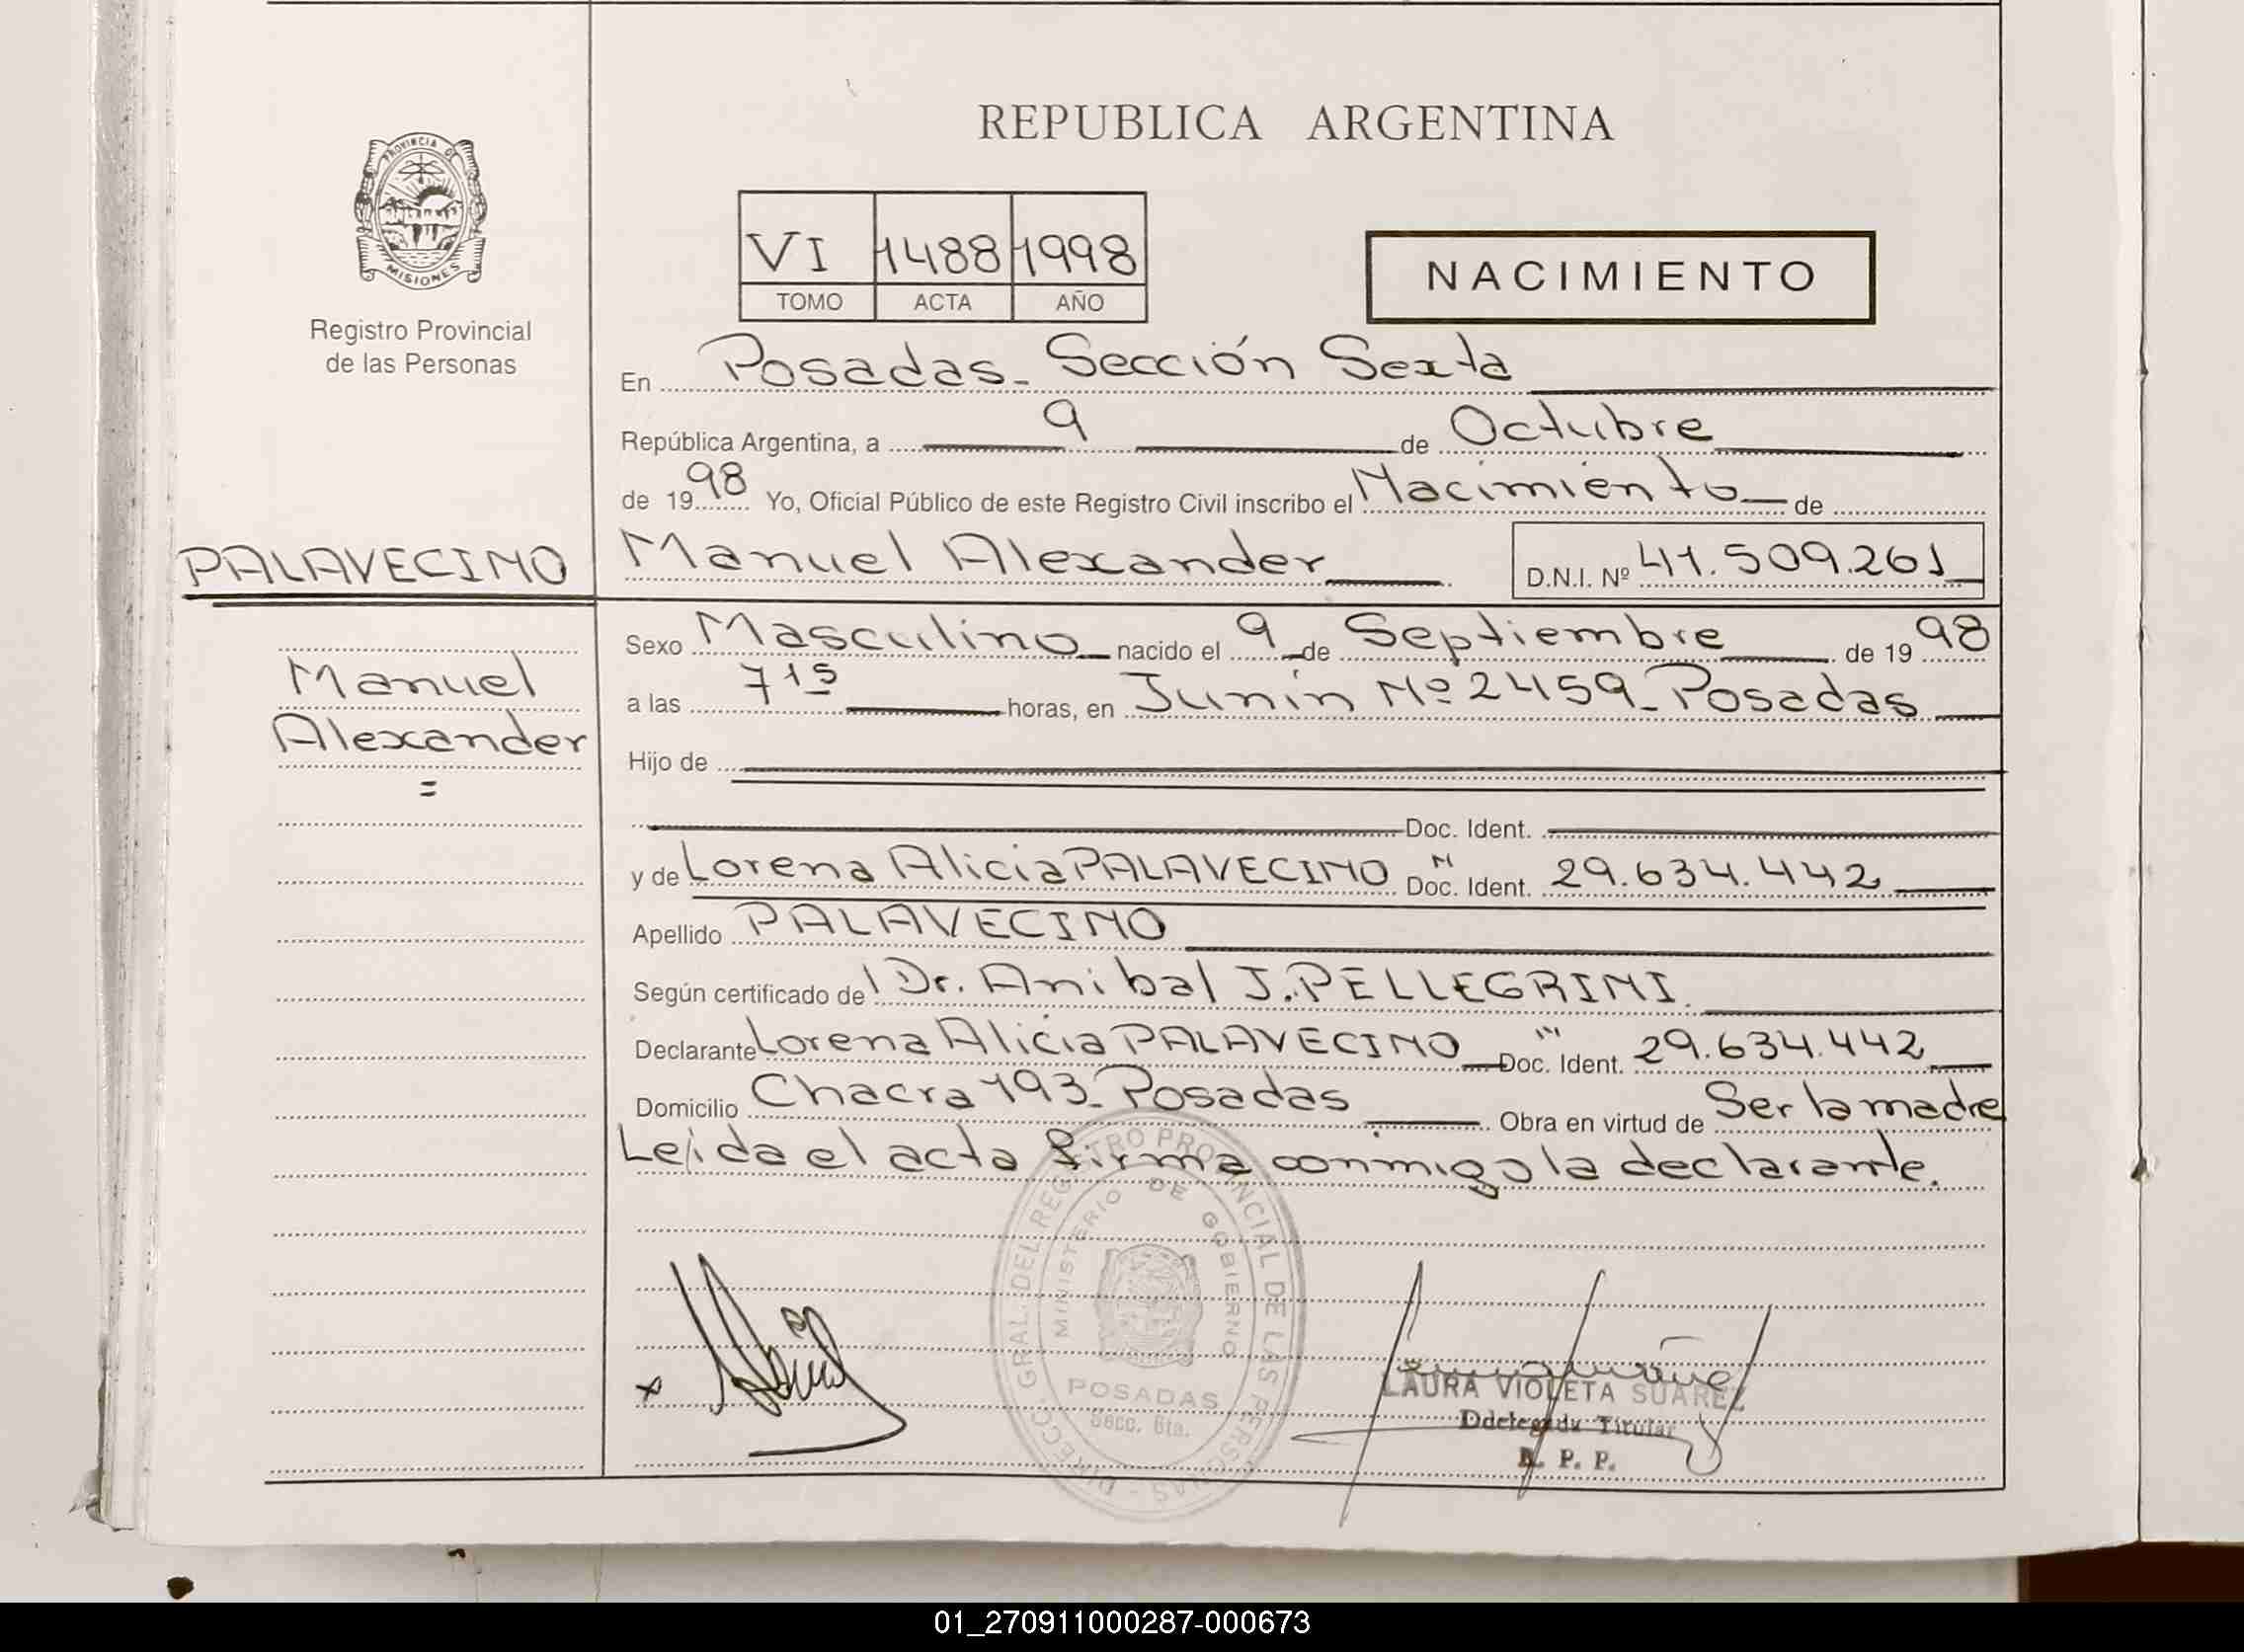 REPUBLICA ARGENTINA
PROVINCIA DE
MISIONES
Registro Provincial
de las Personas
VI 1488 1998
TOMO ACTA AÑO
NACIMIENTO
En Posadas - Sección Sexta
República Argentina, a 9 de Octubre
de 1998 Yo, Oficial Público de este Registro Civil inscribo el Nacimiento de
PALAVECINO
Manuel Alexander
D.N.I. Nº 41.509.261
Manuel
Alexander
=
Sexo Masculino nacido el 9 de Septiembre de 1998
a las 7 15 horas, en Junín Nº 2459 - Posadas
Hijo de
Doc. Ident.
y de Lorena Alicia PALAVECINO Doc. Ident. N 29.634.442
Apellido PALAVECINO
Según certificado del Dr. Anibal J. PELLEGRINI.
Declarante Lorena Alicia PALAVECINO Doc. Ident. N 29.634.442
Domicilio Chacra 193 - Posadas Obra en virtud de Ser la madre
Leída el acta firma conmigo la declarante.
DIRECC. GRAL. DEL REGISTRO PROVINCIAL DE LAS PERSONAS
MINISTERIO DE GOBIERNO
POSADAS
Secc. 6ta.
x
LAURA VIOLETA SUAREZ
Ddelegada Titular
R. P. P.
01_270911000287-000673